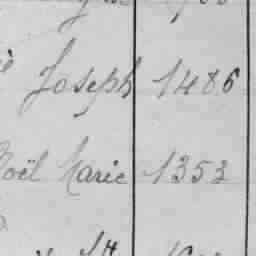 Joseph 1486
Noël Marie 1353